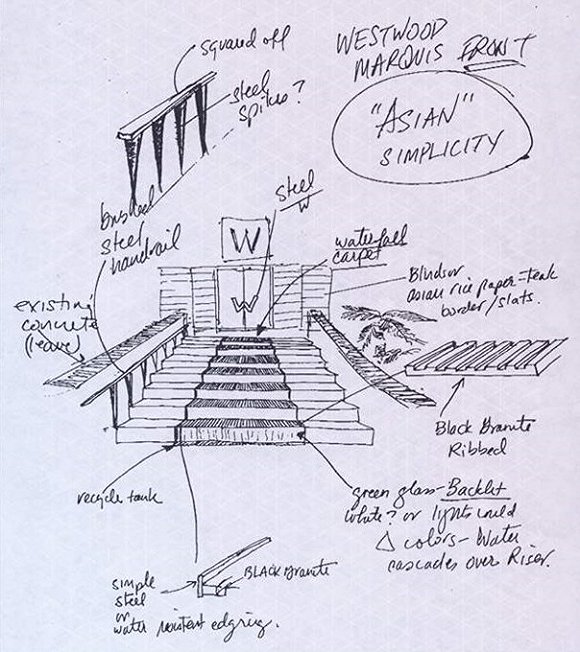 squared off
steel
spikes?
WESTWOOD
MARQUIS FRONT
"ASIAN"
SIMPLICITY
brushed
steel
handrail
steel
W
W
W
waterfall
carpet
Blinds or
Asian rice paper - teak
border/slats.
existing
concrete
(leave)
Black Granite
Ribbed
recycle tank
green glass - Backlit
white? or lights could
Δ colors - Water
cascades over Riser.
BLACK Granite
simple
steel
or
water resistent edging.